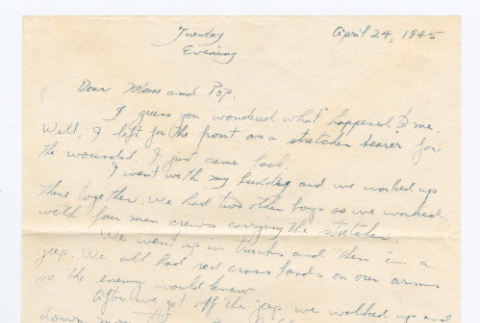 Tuesday
Evening
April 24, 1945
Dear Mom and Pop,
I guess you wondered what happened to me.
Well, I left for the front as a stretcher bearer for
the wounded. I just came back.
I went with my buddy and we worked up
there together. We had two other boys so we worked
with four men crews carrying the stretcher.
We went up in trucks and then in a
jeep. We all had red cross bands on our arms
so the enemy would know.
After we got off the jeep we walked up and
down